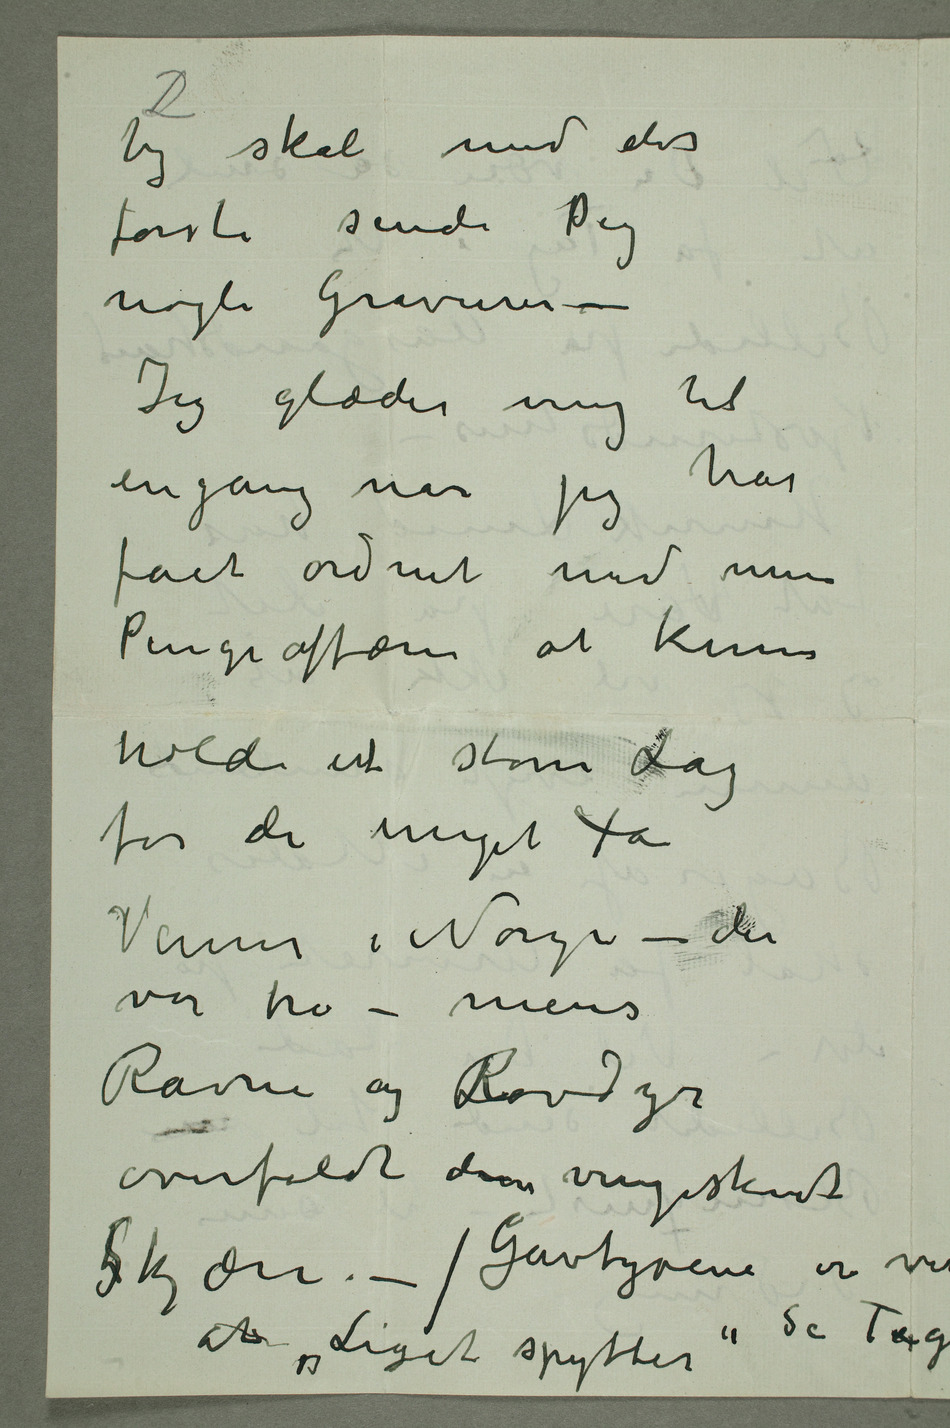 2
Jeg skal med det
første sende Dig
nogle Gravurer –
Jeg glæder mig til
engang når jeg har
fået ordnet med min
Pengeaffære at kunne
holde et større Lag
for de meget få
Venner i Norge – der
var tro – mens
Ravne og Rovdyr
overfaldt den vingeskudt
Skjære. – / Gavtyvene er
at „Liget spytter" Se